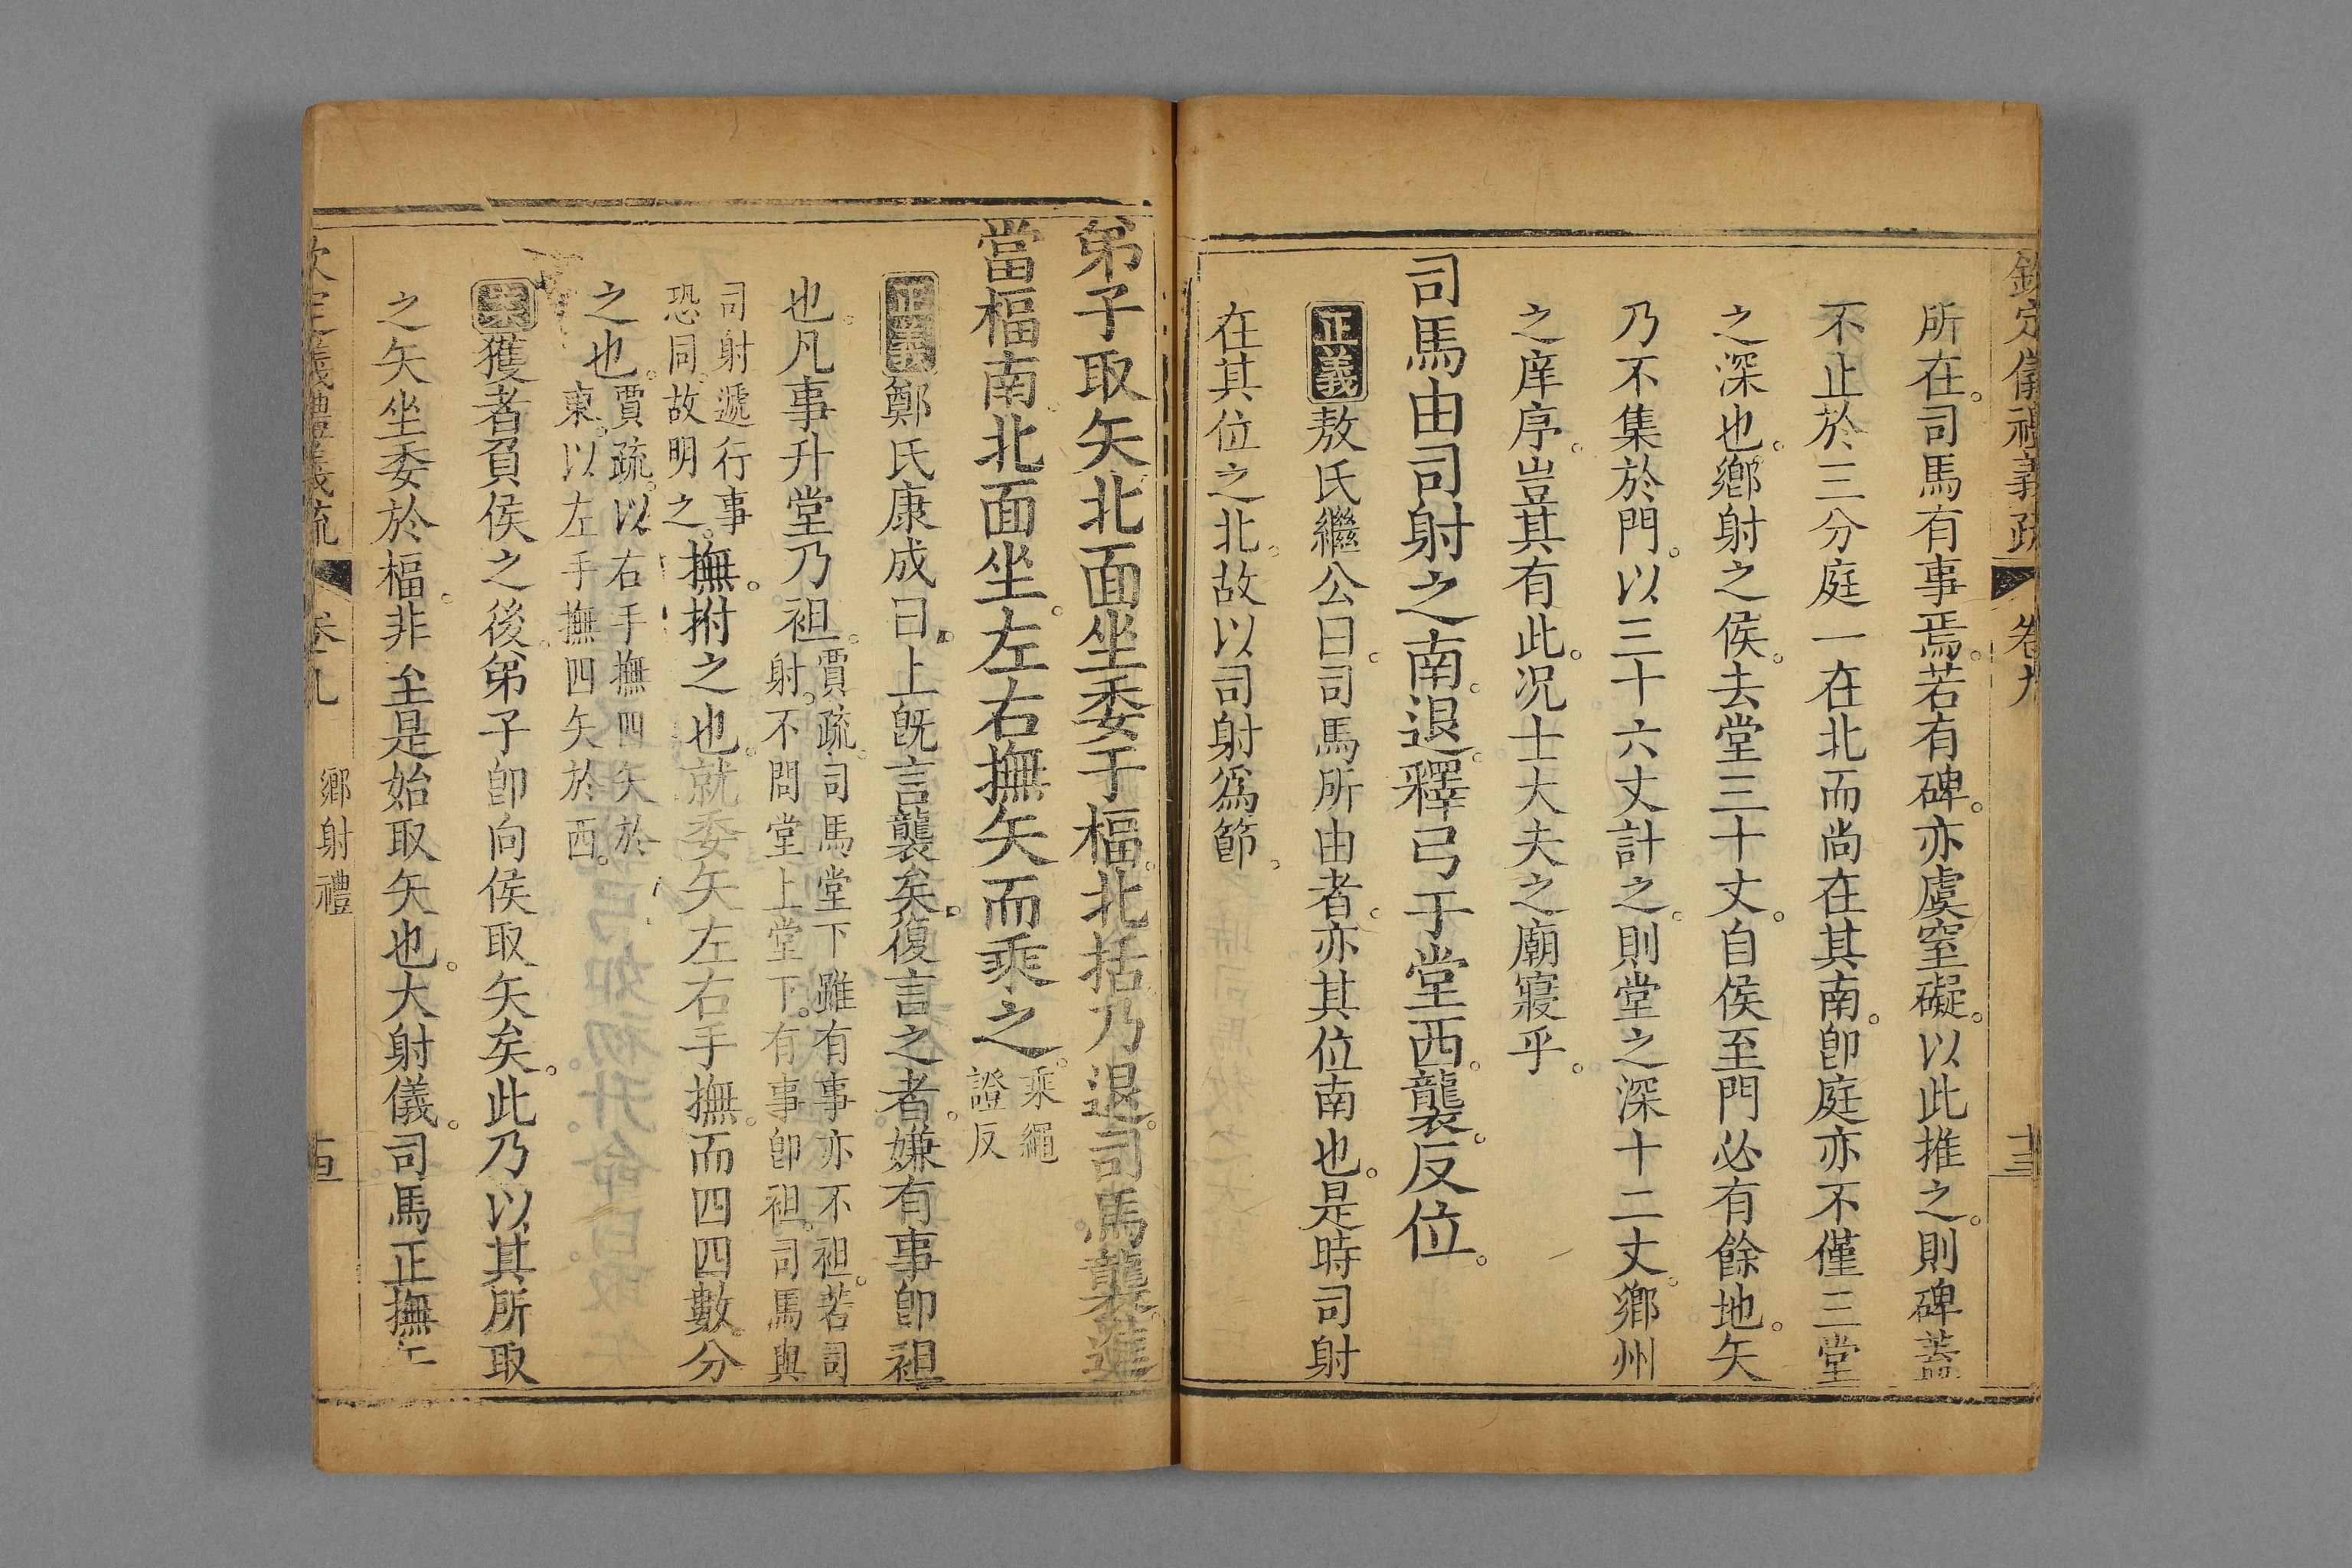 欽定儀禮義疏 卷九
所在。司馬有事焉。若有碑。亦虞窒礙。以此推之。則碑蓋
不止於三分庭一在北。而尚在其南。卽庭亦不僅三堂
之深也。鄉射之侯。去堂三十丈。自侯至門必有餘地。矢
乃不集於門。以三十六丈計之。則堂之深十二丈。鄉州
之庠序。豈其有此。況士大夫之廟寢乎。
司馬由司射之南。退。釋弓于堂西。襲。反位。
正義敖氏繼公曰。司馬所由者。亦其位南也。是時司射
在其位之北。故以司射爲節。
弟子取矢。北面坐委于楅。北括。乃退。司馬襲。進
當楅南。北面坐。左右撫矢而乘之。乘繩
證反
正義鄭氏康成曰。上旣言襲矣。復言之者。嫌有事卽袒
也。凡事升堂乃袒。賈疏。司馬堂下雖有事亦不袒。若司
射。不問堂上堂下。有事卽袒。司馬與
司射遞行事
恐同。故明之。撫。拊之也。就委矢左右手撫。而四四數分
之也。賈疏。以右手撫四矢於
東。以左手撫四矢於西。
案獲者負侯之後。弟子卽向侯取矢矣。此乃以其所取
之矢坐委於楅。非至是始取矢也。大射儀。司馬正撫
欽定儀禮義疏 卷九 鄉射禮